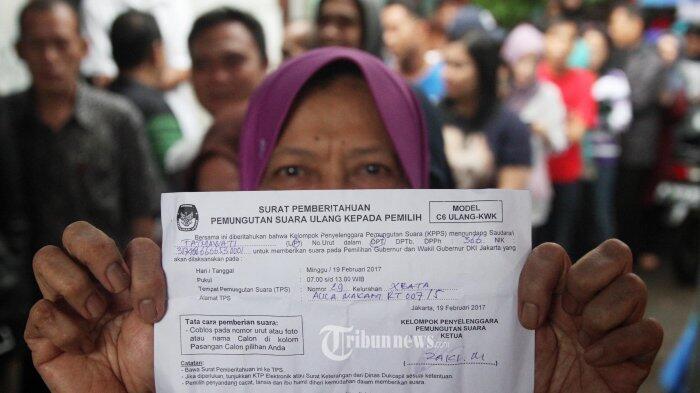 SURAT PEMBERITAHUAN
PEMUNGUTAN SUARA ULANG KEPADA PEMILIH
MODEL
C6 ULANG-KWK
Bersama ini diberitahukan bahwa Kelompok Penyelenggara Pemungutan Suara (KPPS) mengundang Saudara/i
(L/P) No.Urut dalam DPT/ DPTb, DPPh 366 NIK
untuk memberikan suara pada Pemilihan Gubernur dan Wakil Gubernur DKI Jakarta yang
akan dilaksanakan pada :
Hari / Tanggal Minggu / 19 Februari 2017
Pukul 07.00 s/d 13.00 WIB
Tempat Pemungutan Suara (TPS) Nomor 29 Kelurahan
Alamat TPS RT 007/5
Jakarta, 19 Februari 2017
Tata cara pemberian suara :
- Coblos pada nomor urut atau foto
atau nama Calon di kolom
Pasangan Calon pilihan Anda
KELOMPOK PENYELENGGARA
PEMUNGUTAN SUARA
KETUA
Tribunnews.com
Catatan :
- Bawa Surat Pemberitahuan ini ke TPS.
- Jika diperlukan, tunjukkan KTP Elektronik atau Surat Keterangan dari Dinas Dukcapil sesuai ketentuan.
- Pemilih penyandang cacat, lansia dan ibu hamil diberi kemudahan dalam memberikan suara.